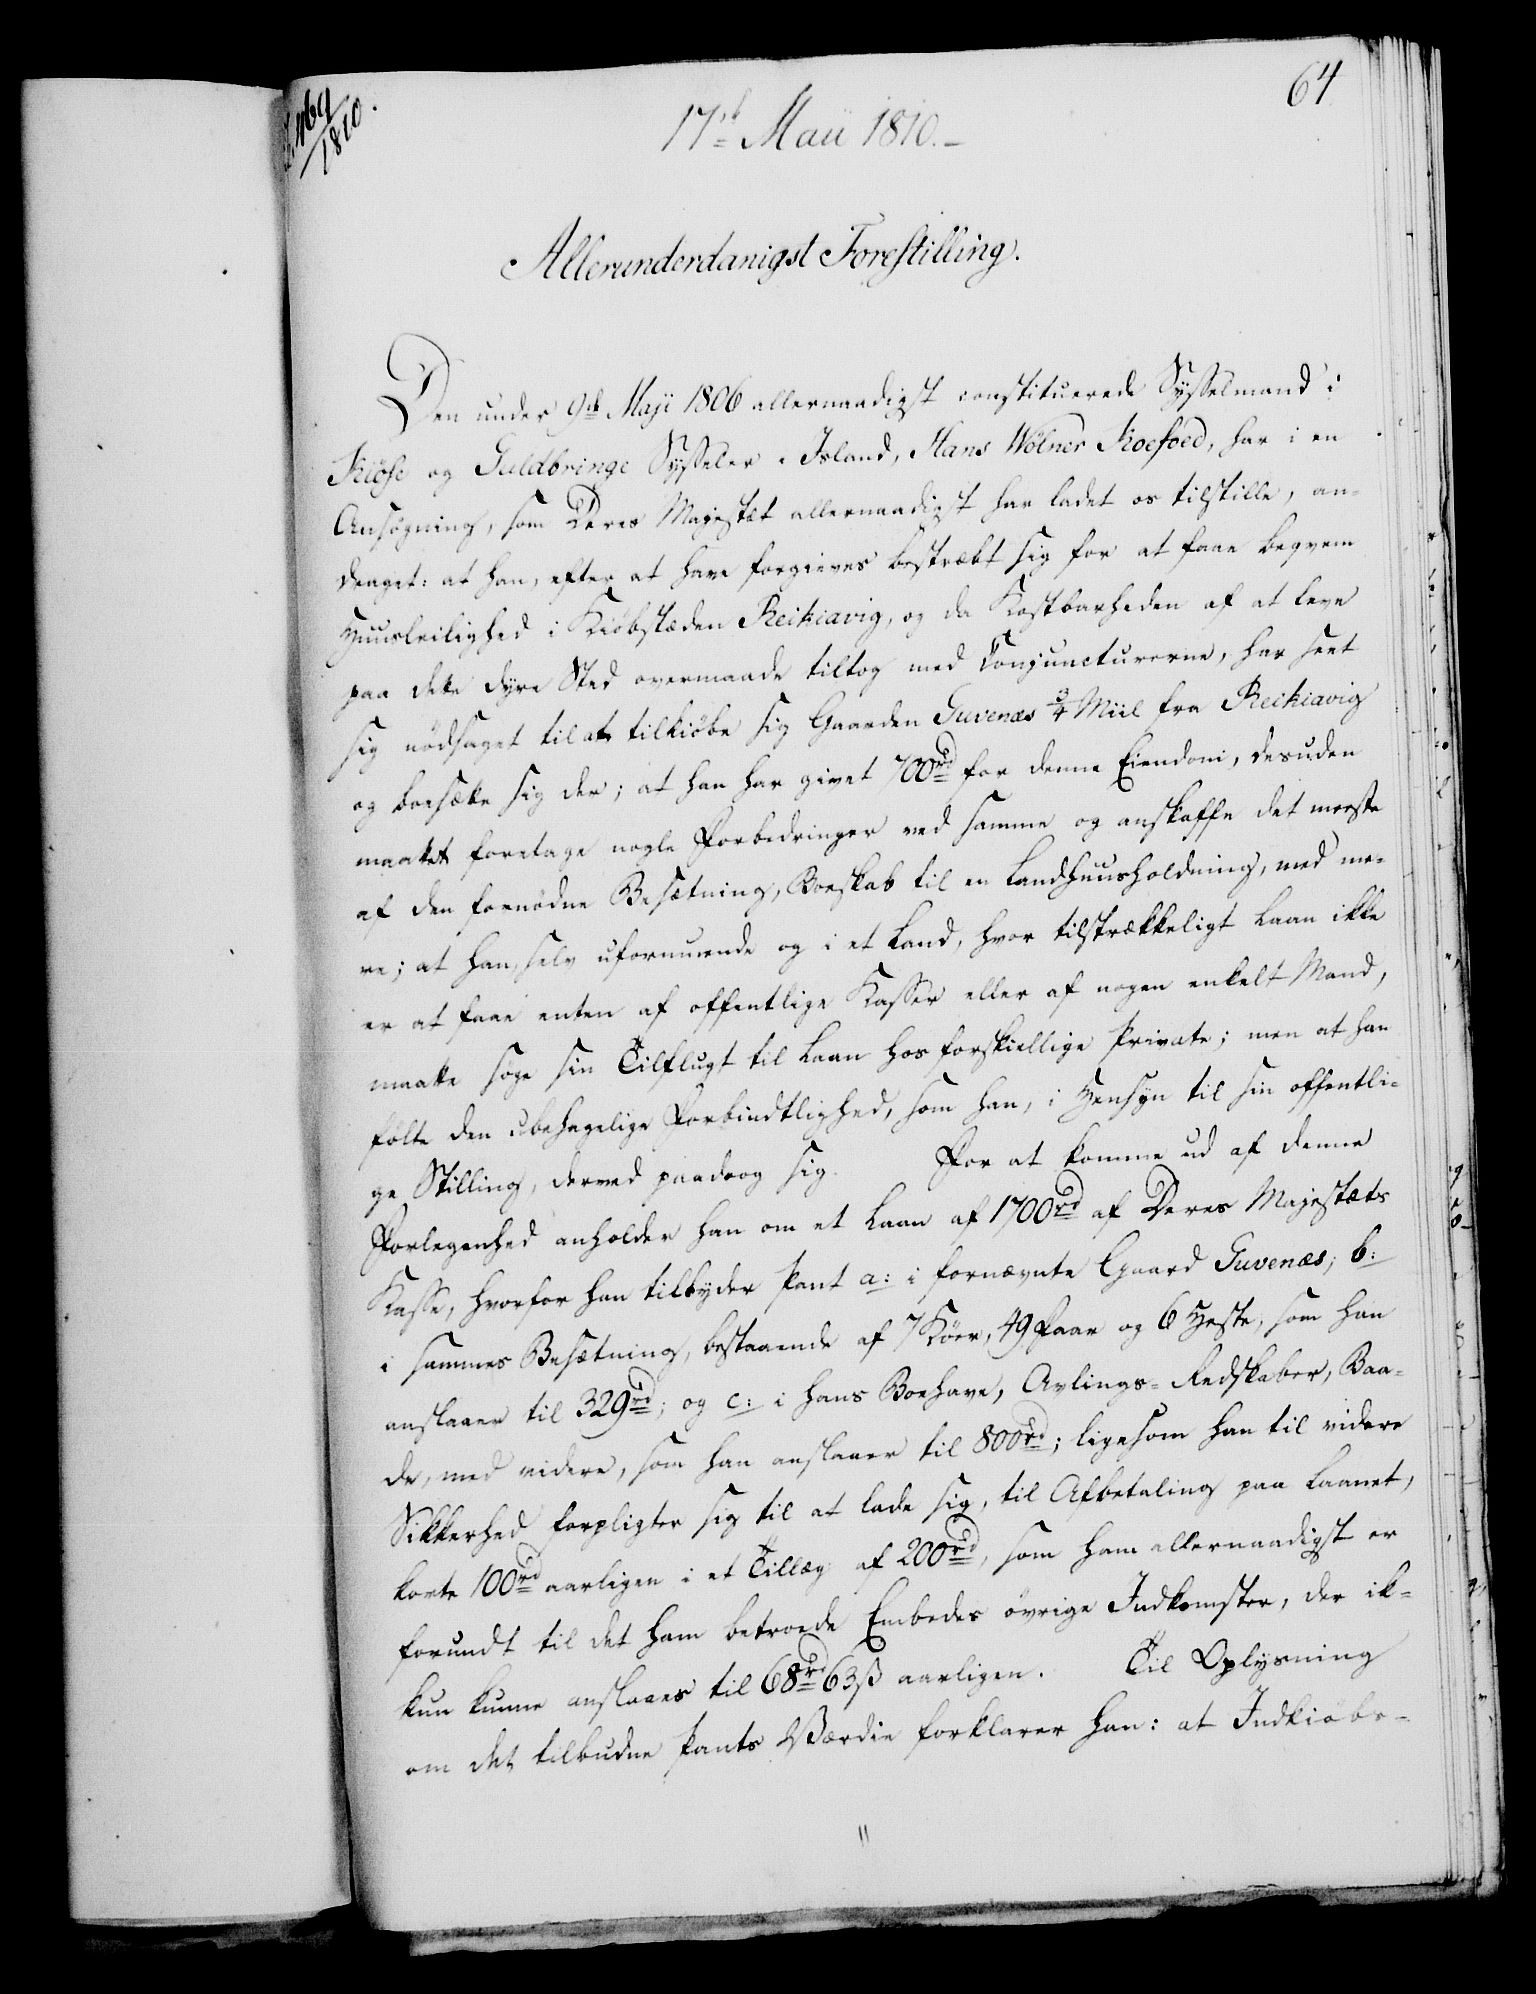 64
469
1810.
17de Maii 1810.-
Allerunderdanigst Forestilling.
Den under 9de Maji 1806 allernaadigst constituerede Sysselmand i
Kiöse og Guldbringe Sysseler i Island, Hans Wölner Koefoed, har i en
Ansögning, som Deres Majestæt allernaadigst har ladet os tilstille, an-
draget: at han, efter at have forgieves bestræbt sig for at faae beqvem
Huusleilighed i Kiöbstæden Reikiavig, og da Kostbarheden af at leve
paa dette dyre Sted overmaade tiltog med Conjuncturerne, har seet
sig nödsaget til at tilkiöbe sig Gaarden Guvenæs 3/4 Miil fra Reikiavig
og boesætte sig der; at han har givet 700rd for denne Eiendom, desuden
maattet foretage nogle Forbedringer ved samme og anskaffe det meeste
af den fornödne Besætning, Boeskab til en Landhuusholdning, med me-
re; at han, selv uformuende og i et Land, hvor tilstrækkeligt Laan ikke
er at faae enten af offentlige Kasser eller af nogen enkelt Mand,
maatte söge sin Tilflugt til Laan hos forskiellige Private; men at han
fölte den ubehagelige Forbindtlighed, som han, i Hensyn til sin offentli-
ge Stilling, derved paadrog sig. For at komme ud af denne
Forlegenhed anholder han om et Laan af 1700rd af Deres Majestæts
Kasse, hvorfor han tilbyder Pant a: i fornævnte Gaard Guvenæs; b:
i sammes Besætning, bestaaende af 7 Köer, 49 Faar og 6 Heste, som han
anslaaer til 329rd; og c: i hans Boehave, Avlings-Redskaber, Baa-
de, med videre, som han anslaaer til 800rd; ligesom han til videre
Sikkerhed forpligter sig til at lade sig, til Afbetaling paa Laanet,
korte 100rd aarligen i et Tillæg af 200rd, som ham allernaadigst er
forundt til det ham betroede Embedes övrige Indkomster, der ik-
kun kunne anslaaes til 68rd 63ß aarligen. Til Oplysning
om det tilbudne Pants Værdie forklarer han: at Indkiöbs-
"